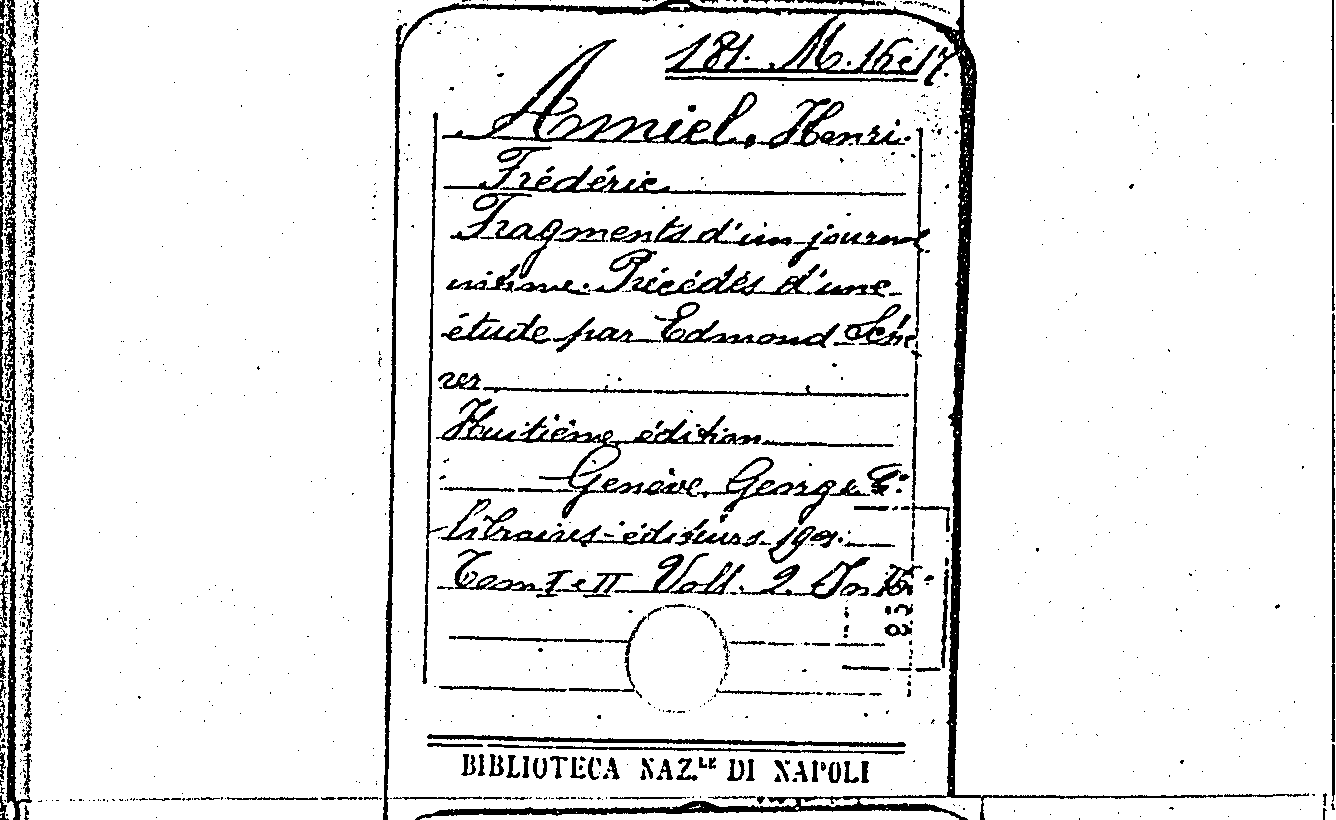 181. M. 16 e 17.
Amiel, Henri-
Frédéric.
Fragments d'un journal
intime. Précédés d'une
étude par Edmond Sche
rer
Huitième édition
Genève, Georg & C.°
libraires-éditeurs 1901.
Tom I e II Voll. 2. In 16°
BIBLIOTECA NAZ.LE DI NAPOLI